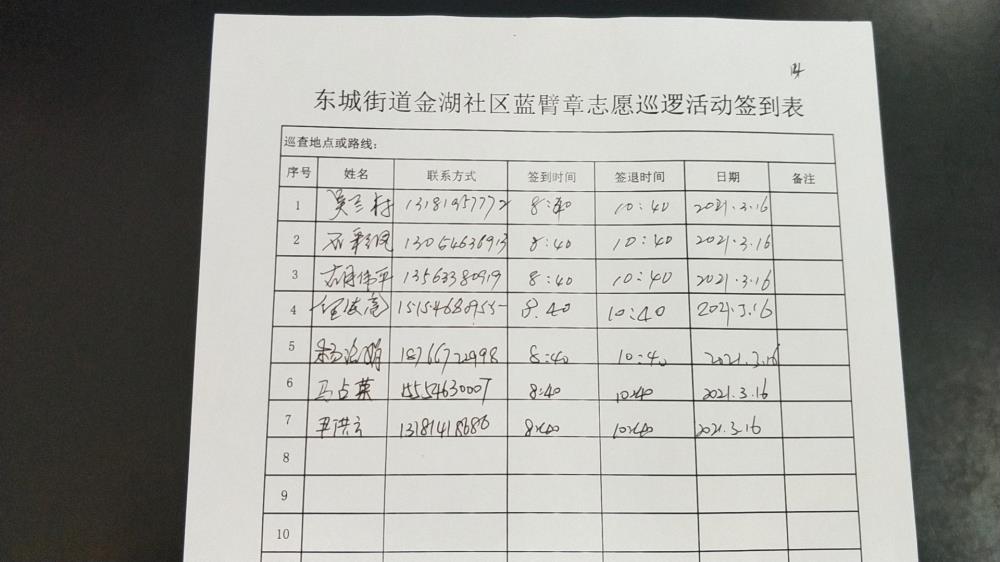 东城街道金湖社区蓝臂章志愿巡逻活动签到表
巡查地点或路线：
序号 姓名 联系方式 签到时间 签退时间 日期 备注
1 13181957772 8:40 10:40 2021.3.16
2 13054636913 8:40 10:40 2021.3.16
3 胡伟平 13563380919 8:40 10:40 2021.3.16
4 8.40 10:40 2021.3.16
5 18766722998 8:40 10:40 2021.3.16
6 马占英 15554630007 8:40 10:40 2021.3.16
7 尹洪 13181418686 8:40 10:40 2021.3.16
8
9
10